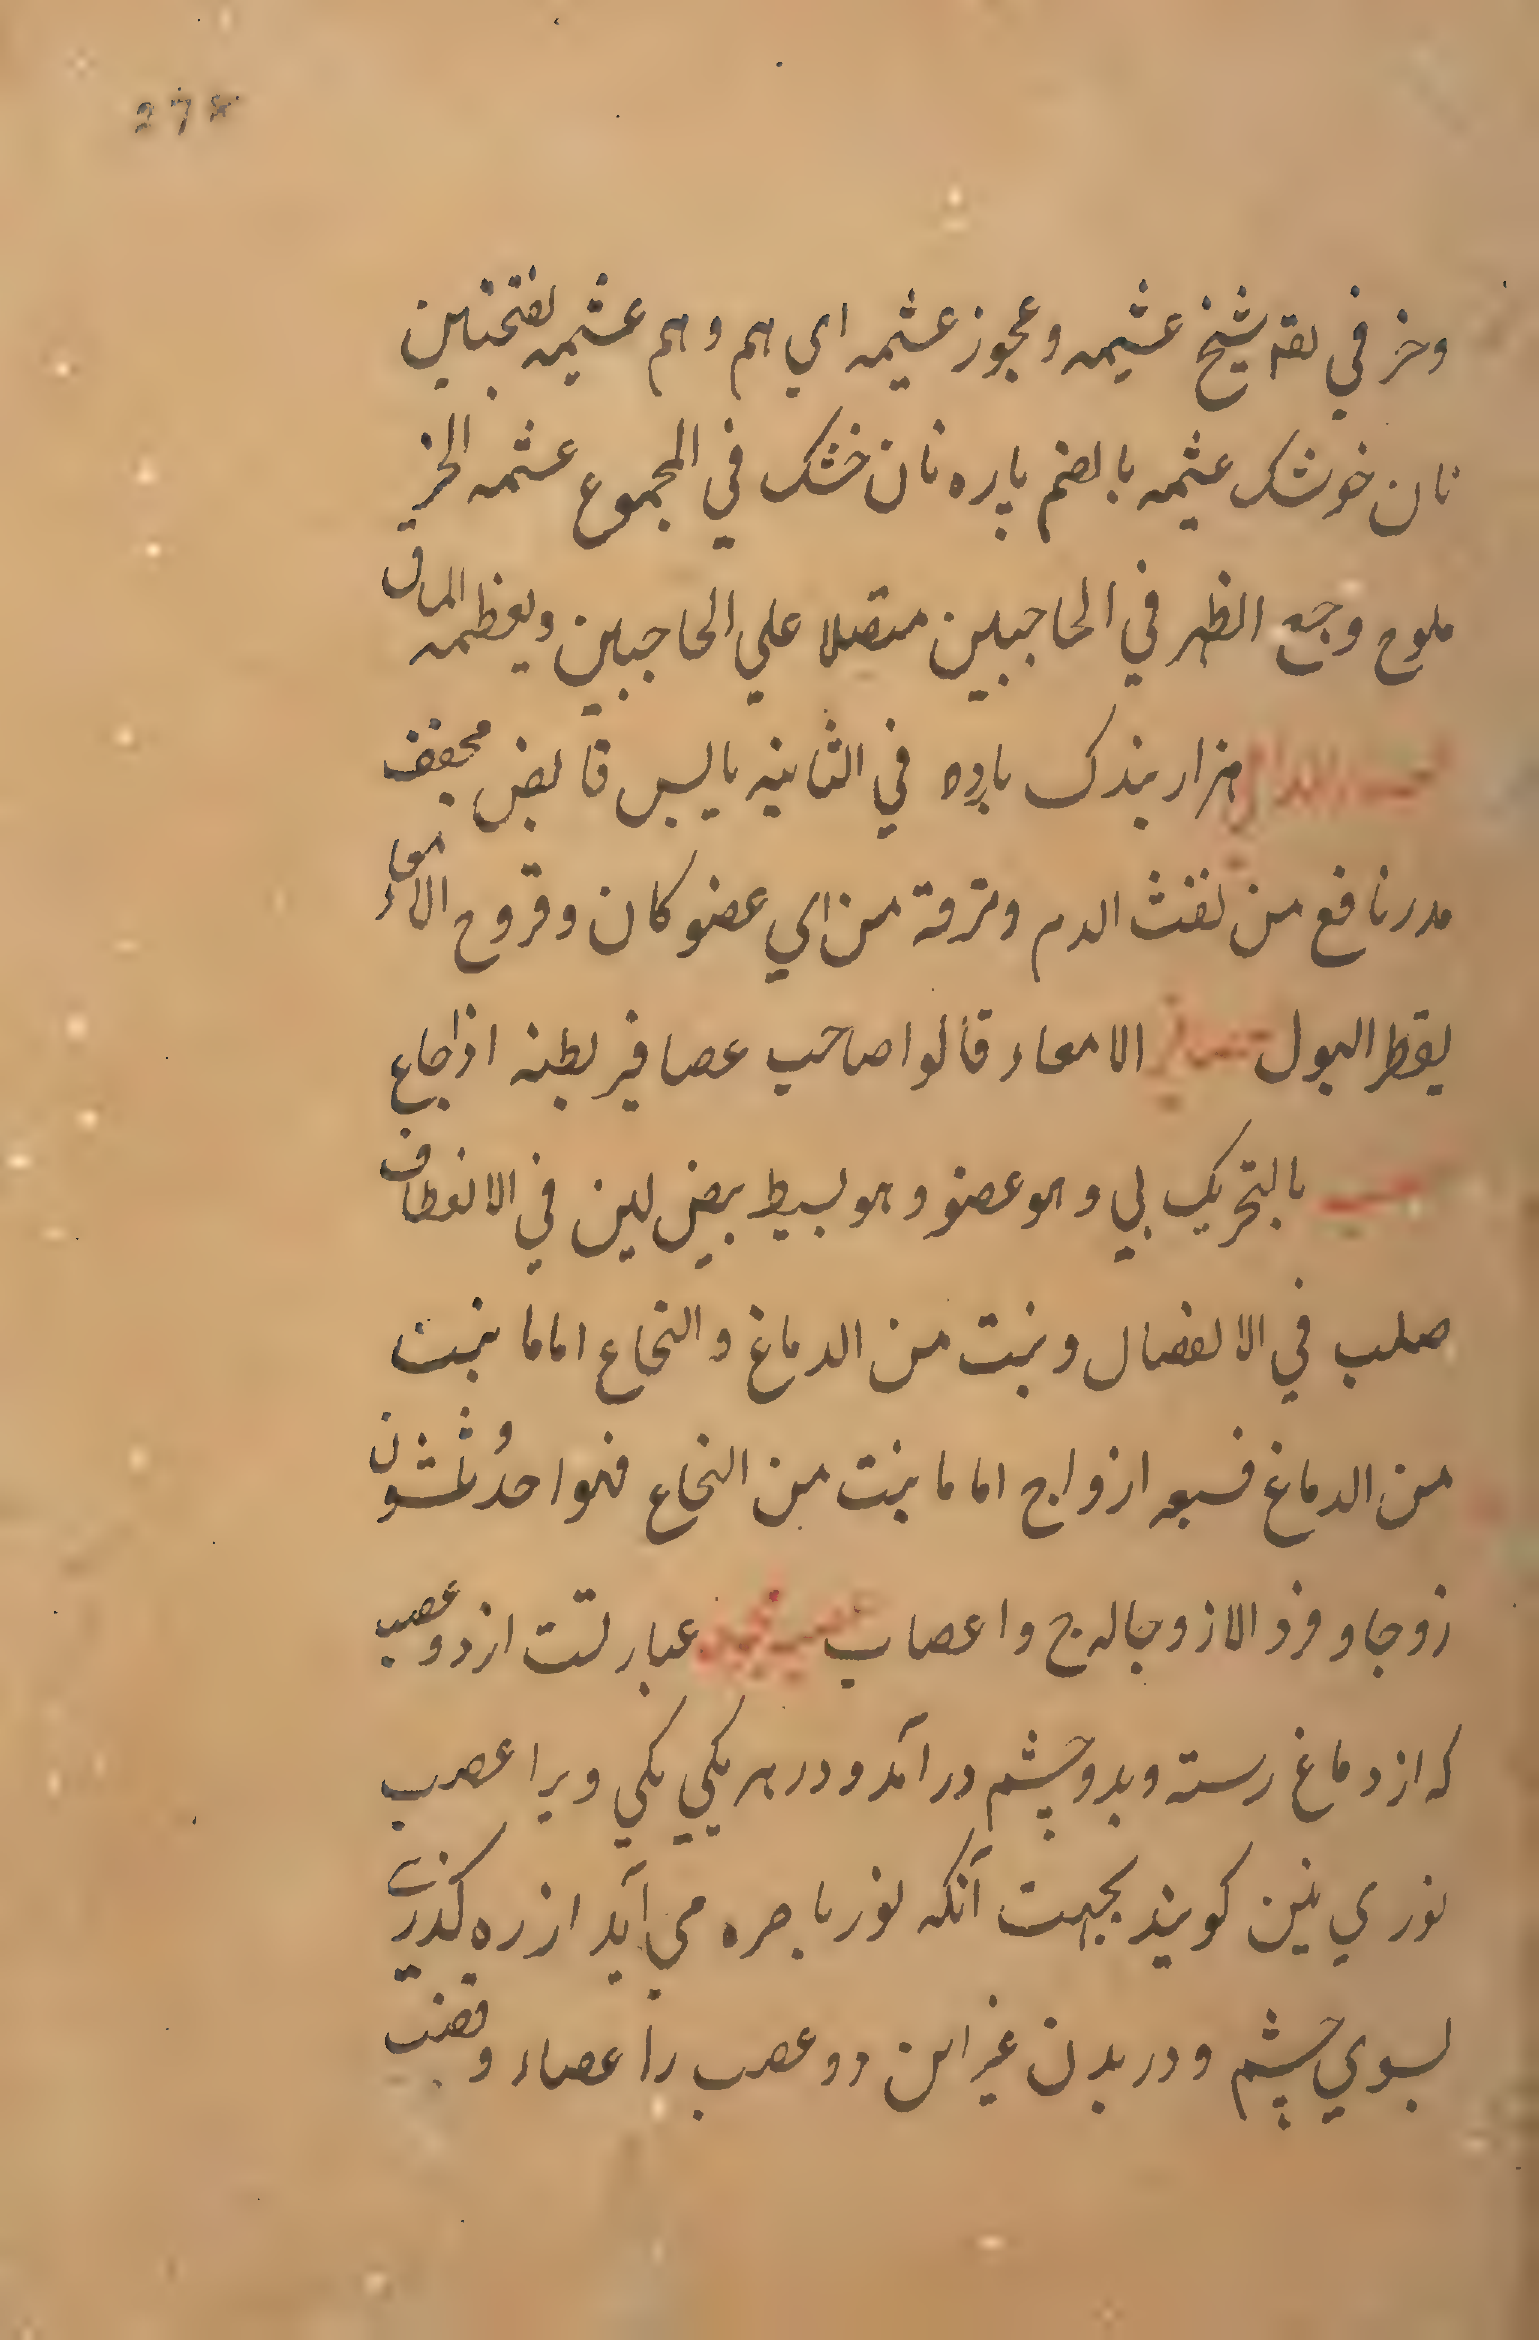 278
وخز في لغة شيخ عشمه وعجوز عشمه اي هم وهم عشمه لفتحتين
نان خوشك عثمه بالضم پاره نان خشك في المجموع عشمه الخز
ملوح وجع الظهر في الحاجبين متصلا علي الحاجبين ويعظمه الماق
هزار بندك بارده في الثانيه يابس قابض مجفف
مدر نافع من نفث الدم ونزفة من اي عضو كان وقروح الامعاء
يقطر البول الامعاء قالوا صاحب عصافير بطنه اذا جاع
عصب بالتحريك لي وهو عضو وهو بسيط بيض لين في الانعطاف
صلب في الانفصال وينبت من الدماغ والنخاع اما ما ينبت
من الدماغ فسبعه ازواج اما ما ينبت من النخاع فهو احد ثلثون
زوجا و فرد الازوجاله ج واعصاب عصب مجوفه عبارتست از دو عصب
كه از دماغ رسته وبدو چشم در آمد ودر هر يكي يكي ويرا عصب
نوري نين كويند بجهت آنكه نور باصره مي آيد از ره كذرى
بسوي چشم ودر بدن غير اين دو عصب را عصاء و